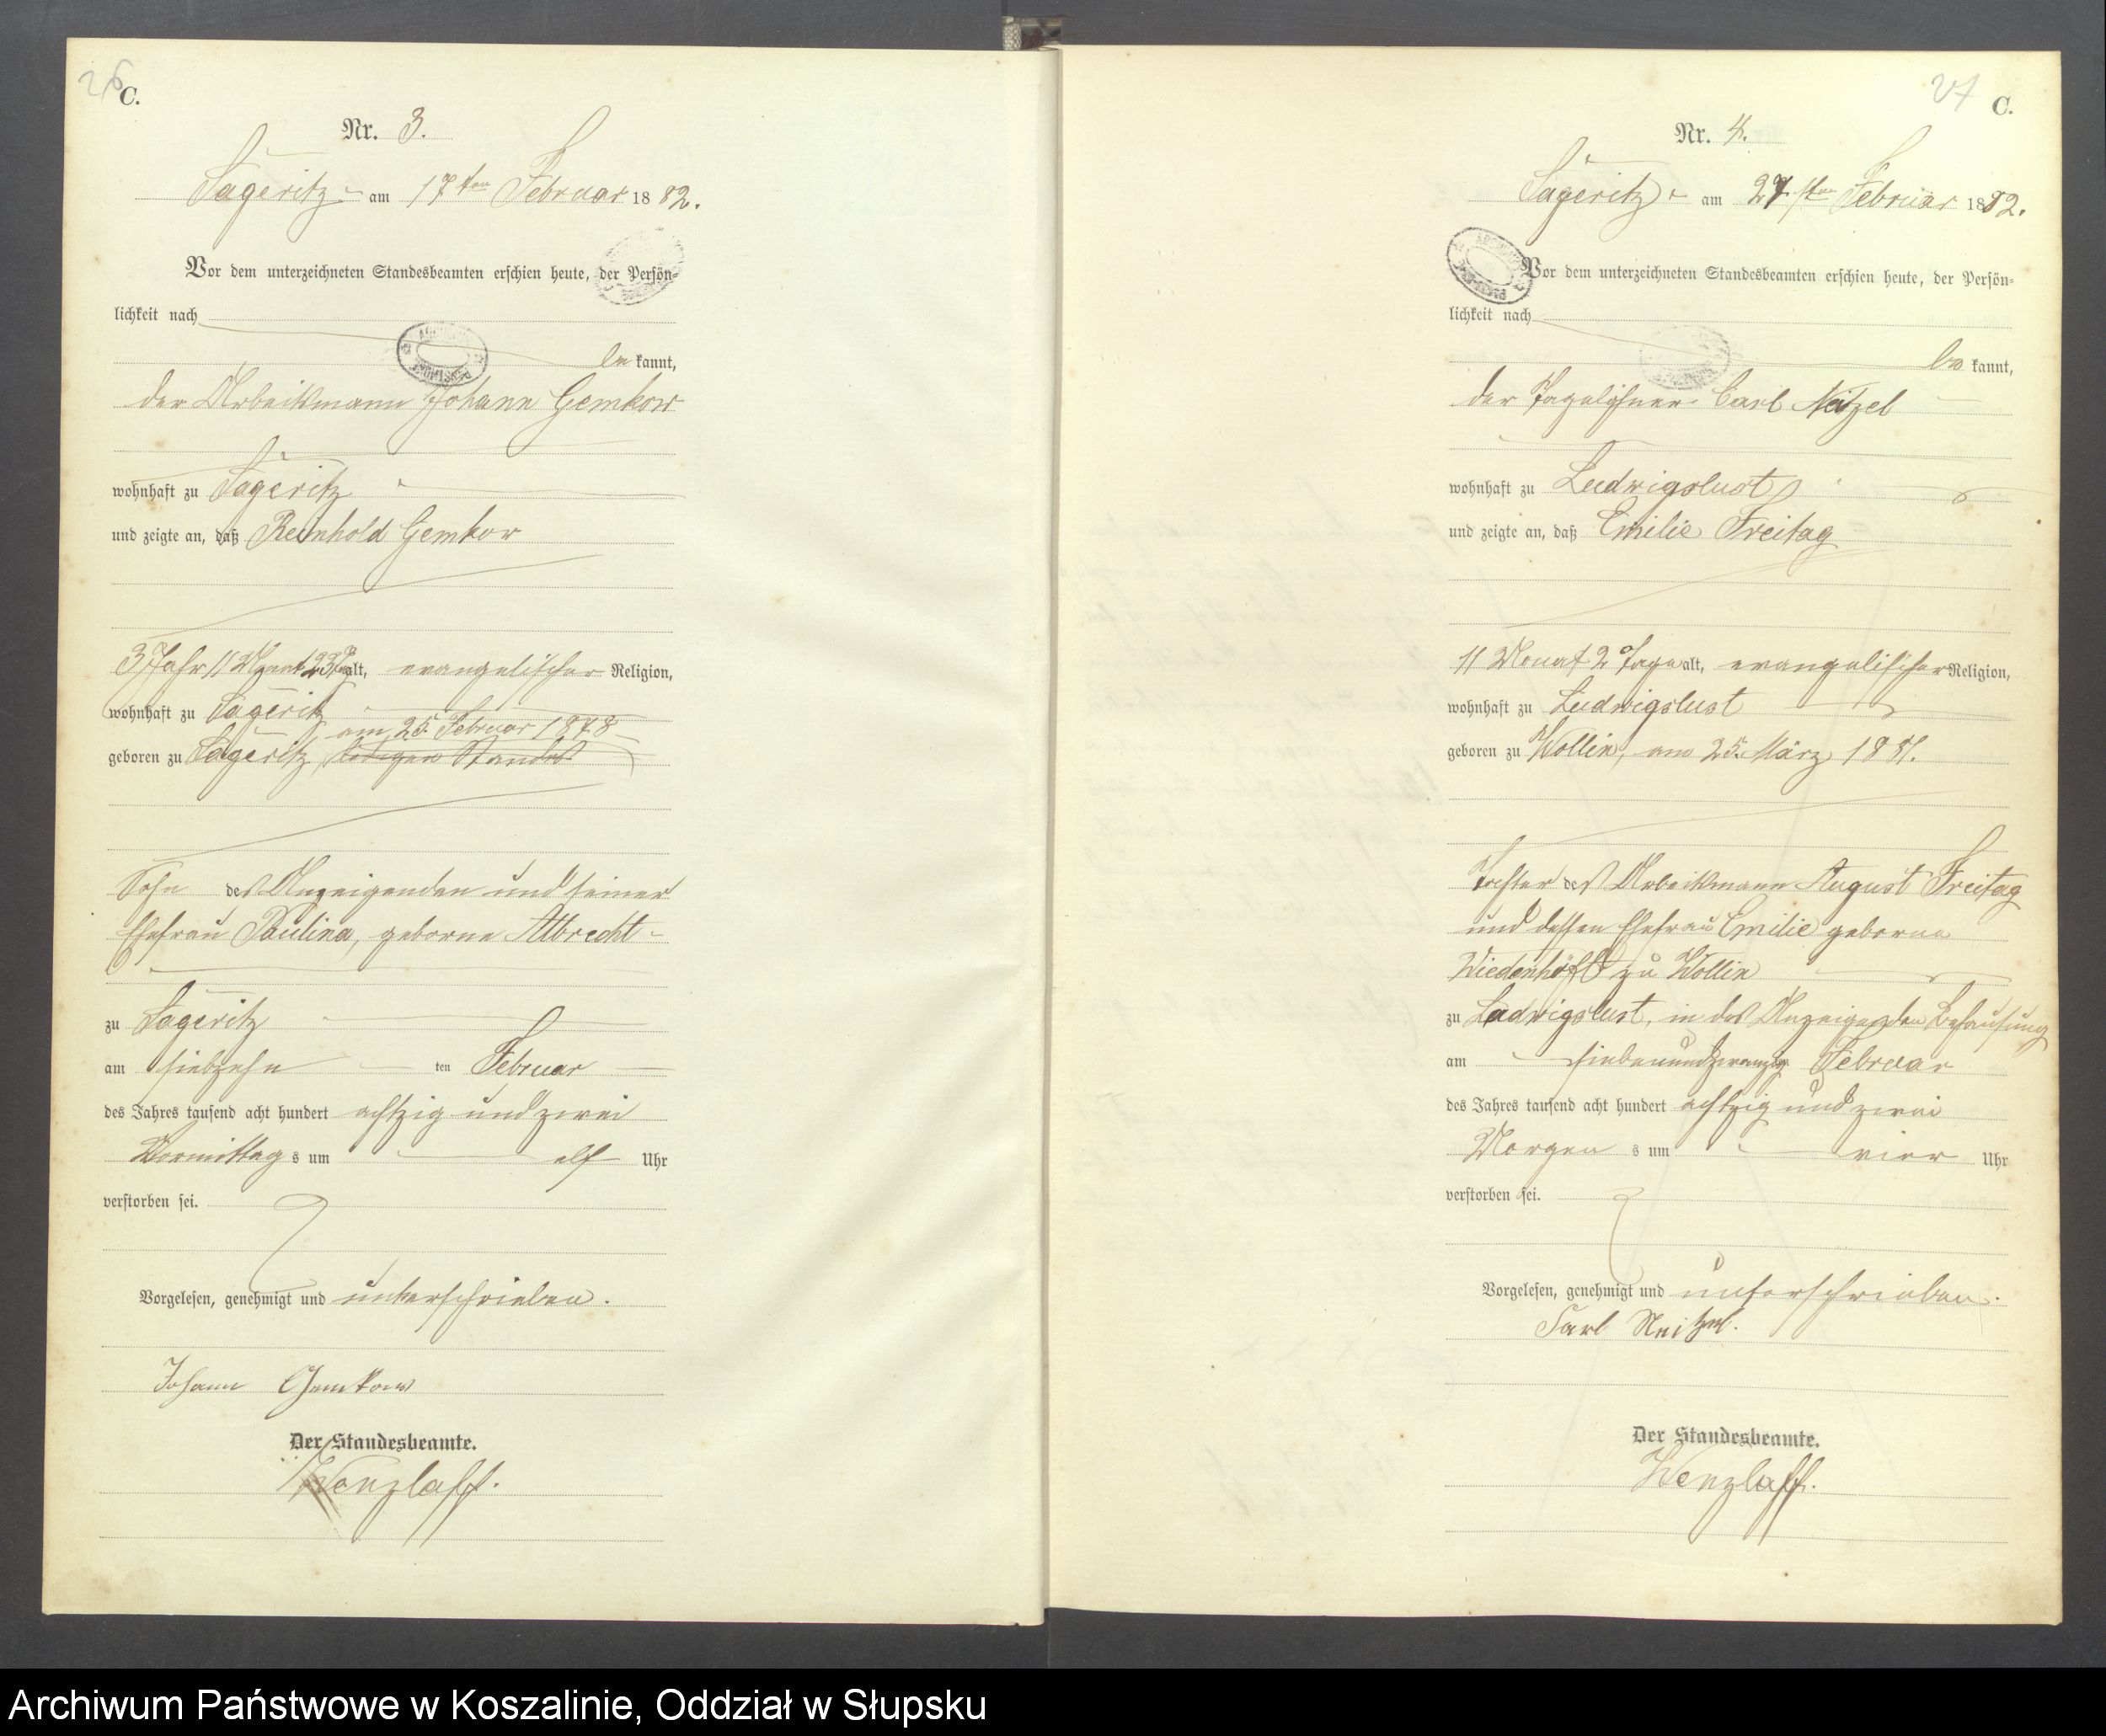 26
C.
Nr. 3.
Sageritz am 17ten Februar 1882.
Vor dem unterzeichneten Standesbeamten erschien heute, der Persön-
lichkeit nach
be kannt,
der Arbeitsmann Johann Gemkow
wohnhaft zu Sageritz
und zeigte an, daß Reinhold Gemkow
3 Jahr 11 Monat 23 Tage alt, evangelischer Religion,
wohnhaft zu Sageritz
am 25. Februar 1878
geboren zu Sageritz, ledigen Standes
Sohn des Anzeigenden und seiner
Ehefrau Paulina, geborne Albrecht
zu Sageritz
am siebzehn ten Februar
des Jahres tausend acht hundert achtzig und zwei
Vormittag s um elf Uhr
verstorben sei.
Vorgelesen, genehmigt und unterschrieben.
Johann Gemkow
Der Standesbeamte.
Wenzlaff.
27
C.
Nr. 4.
Sageritz am 27ten Februar 1882.
Vor dem unterzeichneten Standesbeamten erschien heute, der Persön-
lichkeit nach
be kannt,
der Tagelöhner Carl Neitzel
wohnhaft zu Ludwigslust
und zeigte an, daß Emilie Freitag
11 Monat 2 Tage alt, evangelischer Religion,
wohnhaft zu Ludwigslust
geboren zu Wollin, am 25. März 1881.
Tochter des Arbeitsmann August Freitag
und dessen Ehefrau Emilie geborne
Wiedenhöft zu Wollin
zu Ludwigslust, in des Anzeigenden Behausung
am siebenundzwanzig Februar
des Jahres tausend acht hundert achtzig und zwei
Morgen s um vier Uhr
verstorben sei.
Vorgelesen, genehmigt und unterschrieben.
Carl Neitzel.
Der Standesbeamte.
Wenzlaff.
Archiwum Państwowe w Koszalinie, Oddział w Słupsku